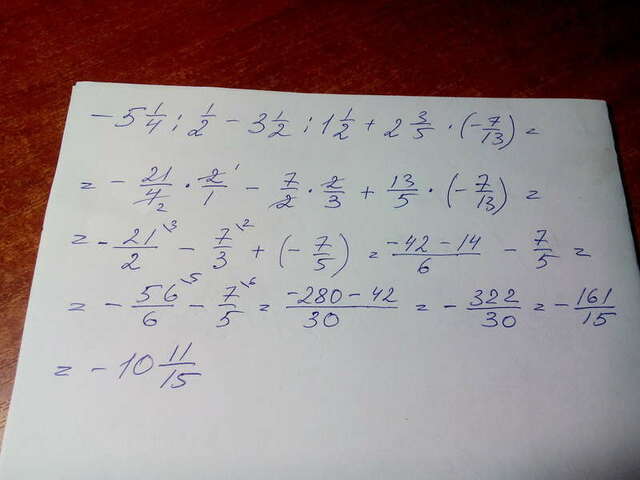 -5 1/4 : 1/2 - 3 1/2 : 1 1/2 + 2 3/5 · (-7/13) =
= - 21/4 2 · 2 1/1 - 7/2 · 2/3 + 13/5 · (-7/13) =
= - 21\3/2 - 7\2/3 + (-7/5) = -42-14/6 - 7/5 =
= - 56\5/6 - 7\6/5 = -280-42/30 = - 322/30 = - 161/15
= -10 11/15